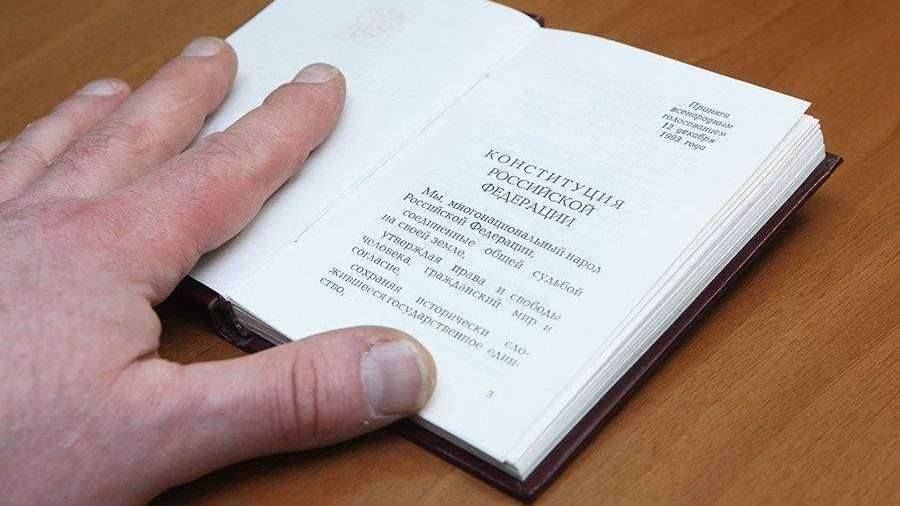 Принята
всенародным
голосованием
12 декабря
1993 года
КОНСТИТУЦИЯ
РОССИЙСКОЙ
ФЕДЕРАЦИИ
Мы, многонациональный народ
Российской Федерации,
соединенные общей судьбой
на своей земле,
утверждая права и свободы
человека, гражданский мир и
согласие,
сохраняя исторически сло-
жившееся государственное един-
ство,
3